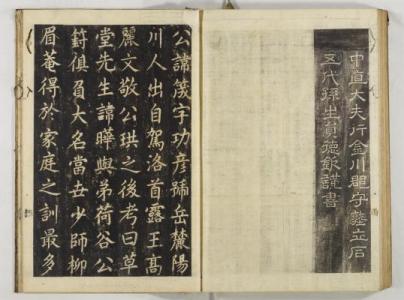 中直大夫行金川郡守立石
五代孫生員德謹書
公諱筬字功彦號岳麓陽
川人出自駕洛首露王高
麗文敬公珙之後考曰草
堂先生諱曄與弟荷谷公
篈俱負大名當世少師柳
眉菴得於家庭之訓最多